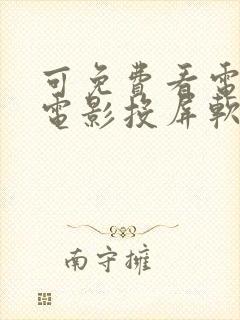 可免費看電
電影投屏軟
南守擁